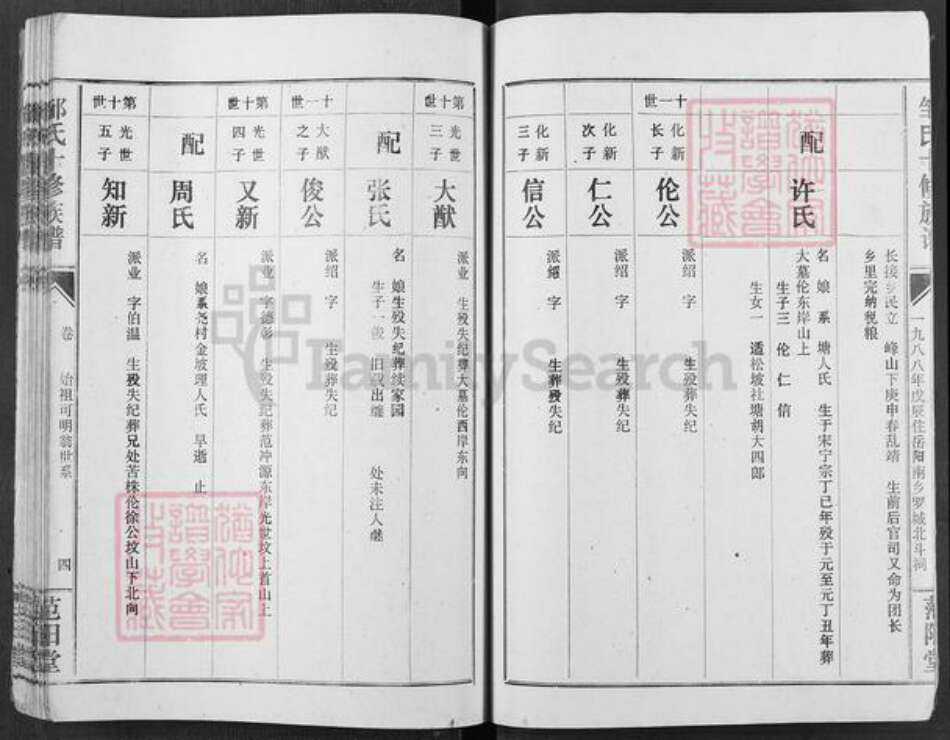 一九八八年戊辰住岳阳南乡罗城北斗祠
范阳堂
长接 民立 峰山下庚申春乱靖 生前后官司又命为团长
乡里完纳税粮
配
许氏
名 娘 系 塘人氏 生于宋宁宗丁巳年殁于元至元丁丑年葬
大墓伦东岸山上
生子三 伦 仁 信
生女一 适松坡社塘胡大四郎
十一世
化新长子
伦公
派绍 字 生殁葬失纪
化新次子
仁公
派绍 字 生殁葬失纪
化新三子
信公
派绍 字 生葬殁失纪
第十世
光世三子
大猷
派业 生殁失纪葬大墓伦西岸东向
配
张氏
名 娘生殁失纪葬续家园
生子一俊 旧载出继 处未注人继
十一世
大猷之子
俊公
派绍 字 生殁葬失纪
第十世
光世四子
又新
派业 字德彰 生殁失纪葬范冲源东岸光世坟上首山上
配
周氏
名 娘系尧村金坡理人氏 早逝 止
第十世
光世五子
知新
派业 字伯温 生殁失纪葬兄处苦株伦徐公坟山下北向
邹氏十修族谱
卷
始祖可明翁世系
四
范阳堂
FamilySearch